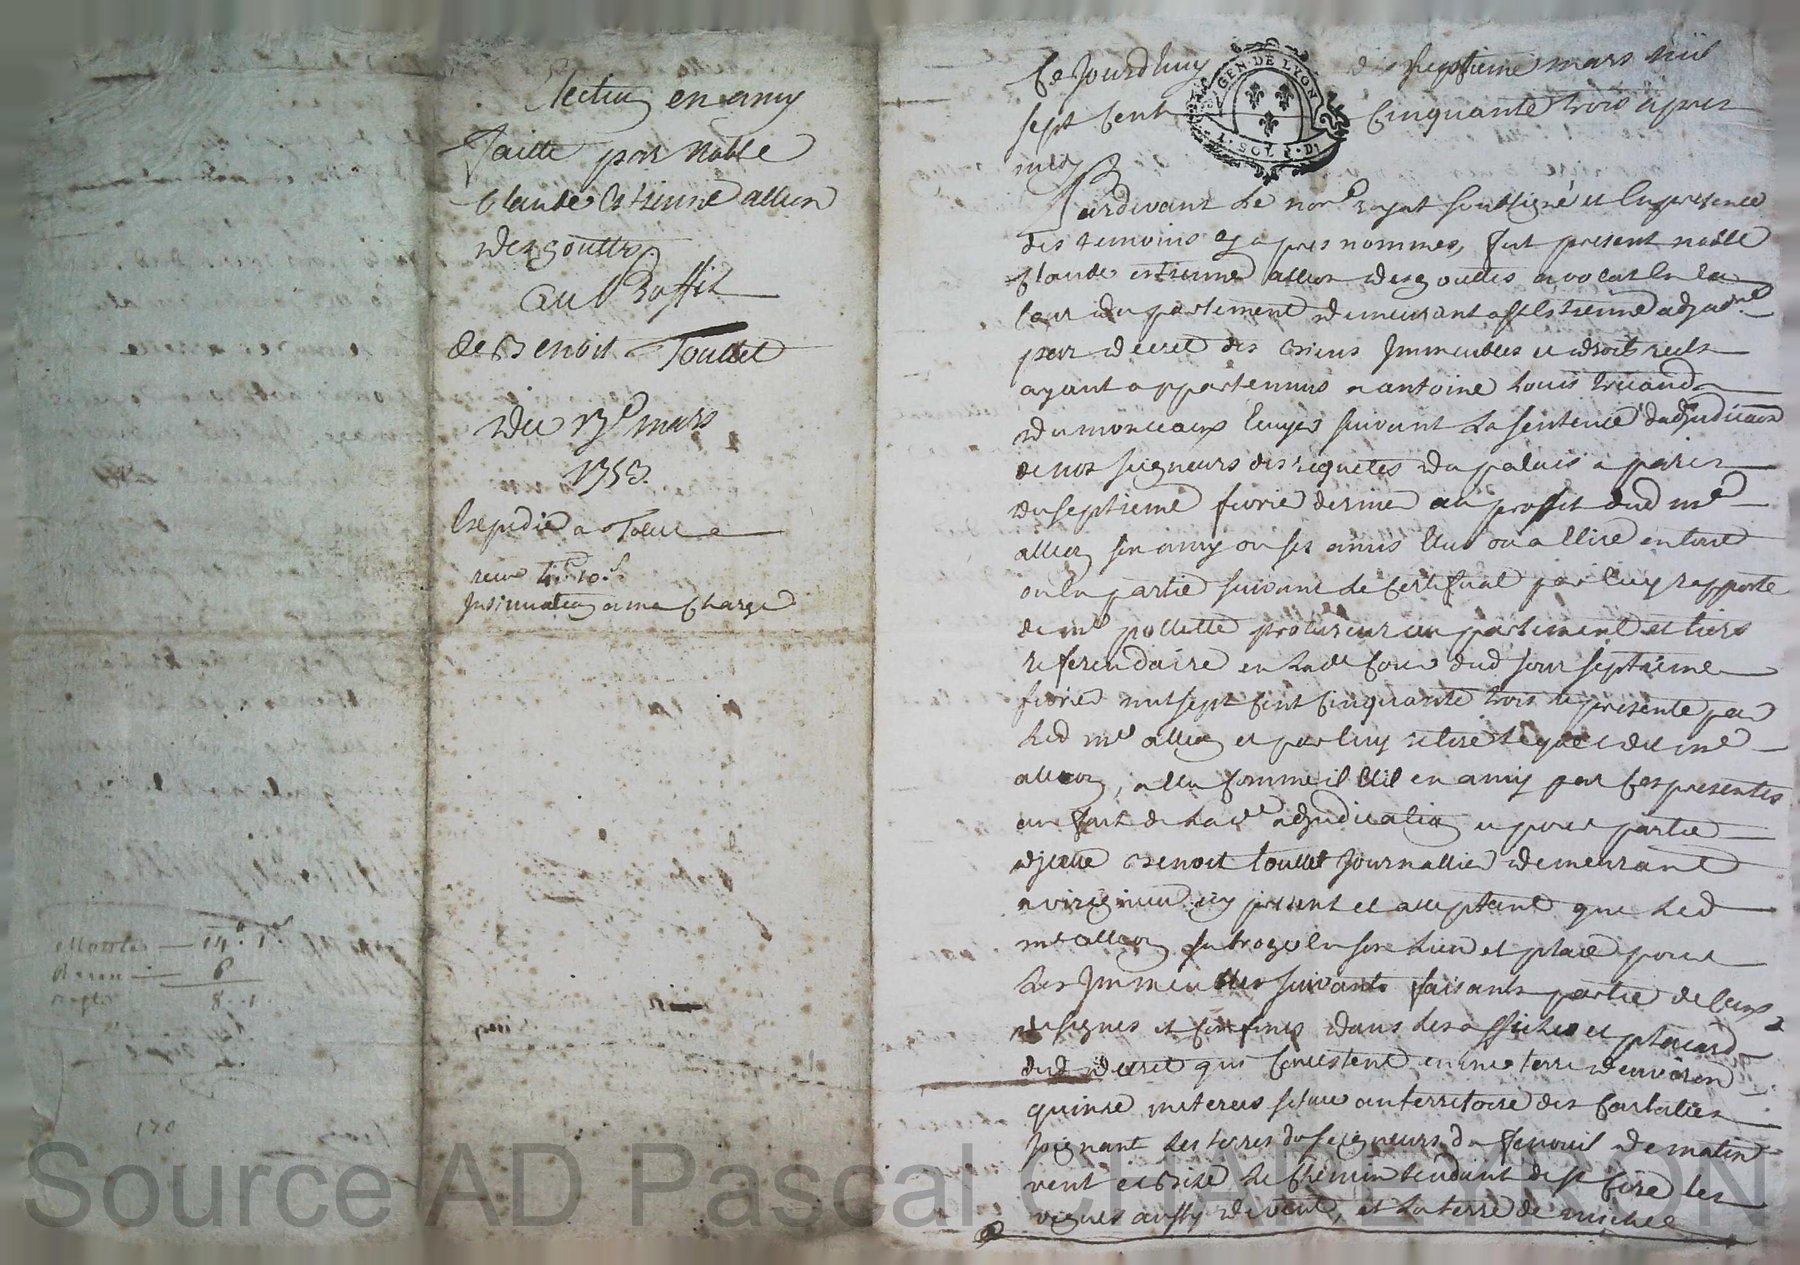 Election en amy
faitte par noble
Claude Estienne allion
Desgouttes
au Proffit
de Benoit Toullet
Du 17e mars
1753.
Expedié a
receu 4# 10s
Insinuation a ma Charge
6
8 . 1
170
Ce Jourdhuy dix septieme mars mil
sept Cent Cinquante trois apres
midy
GEN. DE LYON
1. SOL
Pardevant Le nore Royal soussigné et En presence
des temoins cy apres nommes, fut present noble
Claude estienne allion desgouttes avocat En la
Cour du parlement demeurant a st Estienne adjud.re
par decret des Biens Immeubles et droits reels
ayant appartennus a antoine Louis
Dumonceaux Ecuyer suivant La sentence Dadjudication
de nos seigneurs des requetes du palais a paris
du septieme fevrié dernier au proffit dud me
allion son amy ou ses amis Elus ou a Elire en tout
ou En partie suivant le Certificat par luy rapporté
de me pollette procureur au parlement et tiers
referendaire en lade Cour dud jour septieme
fevrié mil sept Cent Cinquante trois representé par
Led me allion et par luy retiré Lequel dit me
allion, a Elu Comme il Elit en amy par Ces presentes
en fait de Lade adjudication et pour partie
dicelle Benoit toullet Journallier demeurant
a virignieu icy present et acceptant que Led
me allion subroge En son Lieu et place pour
Les Immeubles suivants faisants partie de Ceux
designes et Confines dans les affiches et placards
dud decret qui Consistent en une terre denviron
quinze meterees située au territoire des
Joignant Les terres du seigneurs du fenouil de matin
vent et Bize Le Chemin tendant de st Cire les
vignes aussy de vent, et La terre de michel
Source AD Pascal CHAREYRON